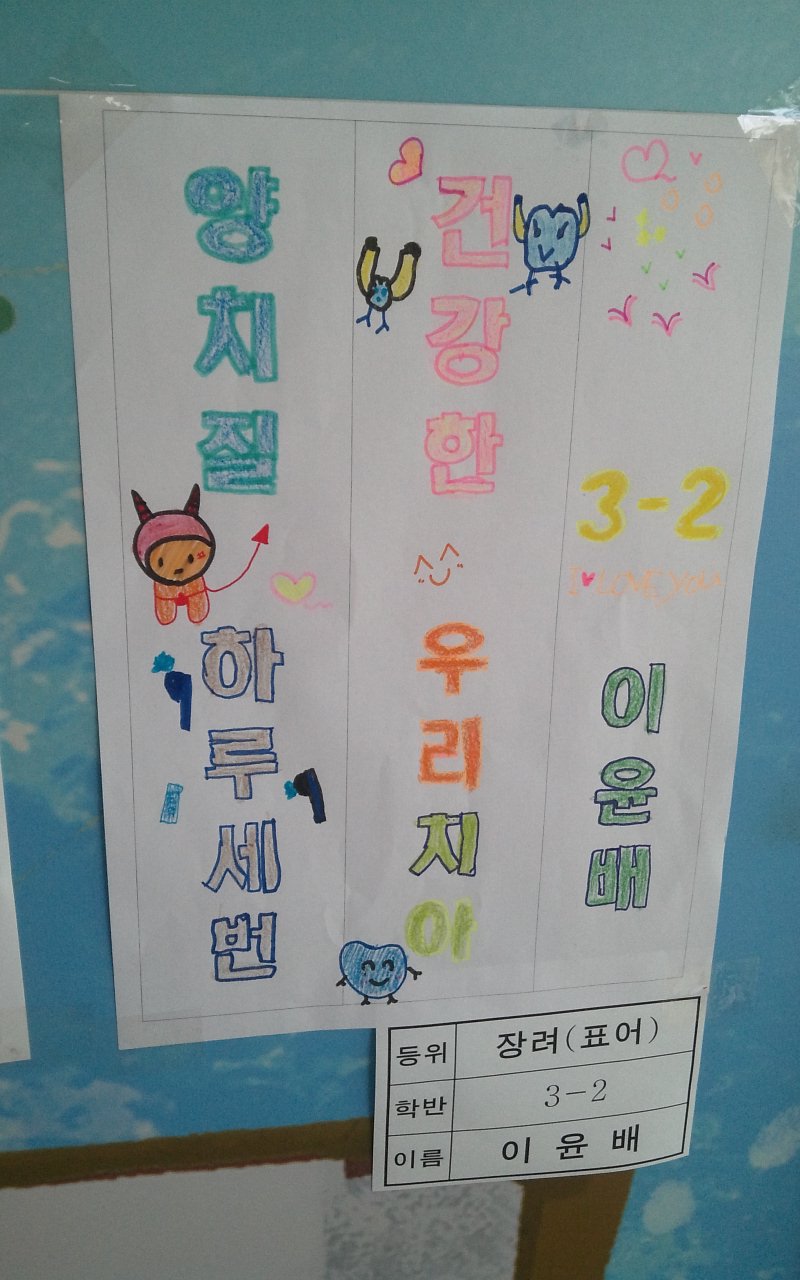 양치질
하루세번
건강한
우리치아
3-2
I LOVE you
이윤배
등위 장려(표어)
학반 3-2
이름 이윤배